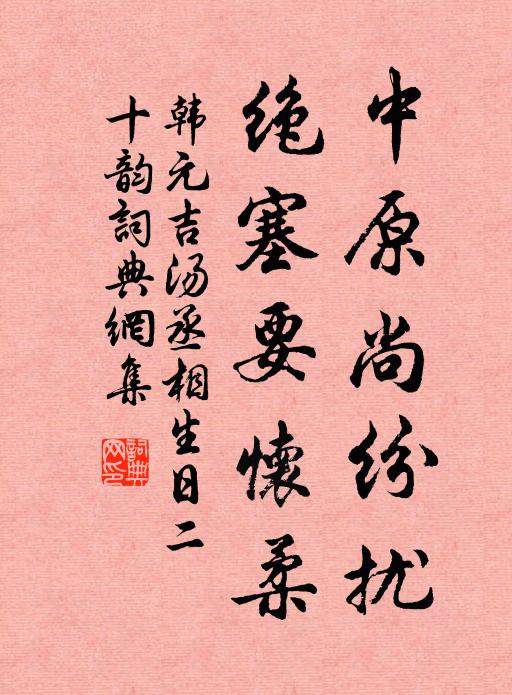 中原尚纷扰
绝塞要懷柔
韩元吉汤丞相生日二
十韵詞典網集
詞典
网印